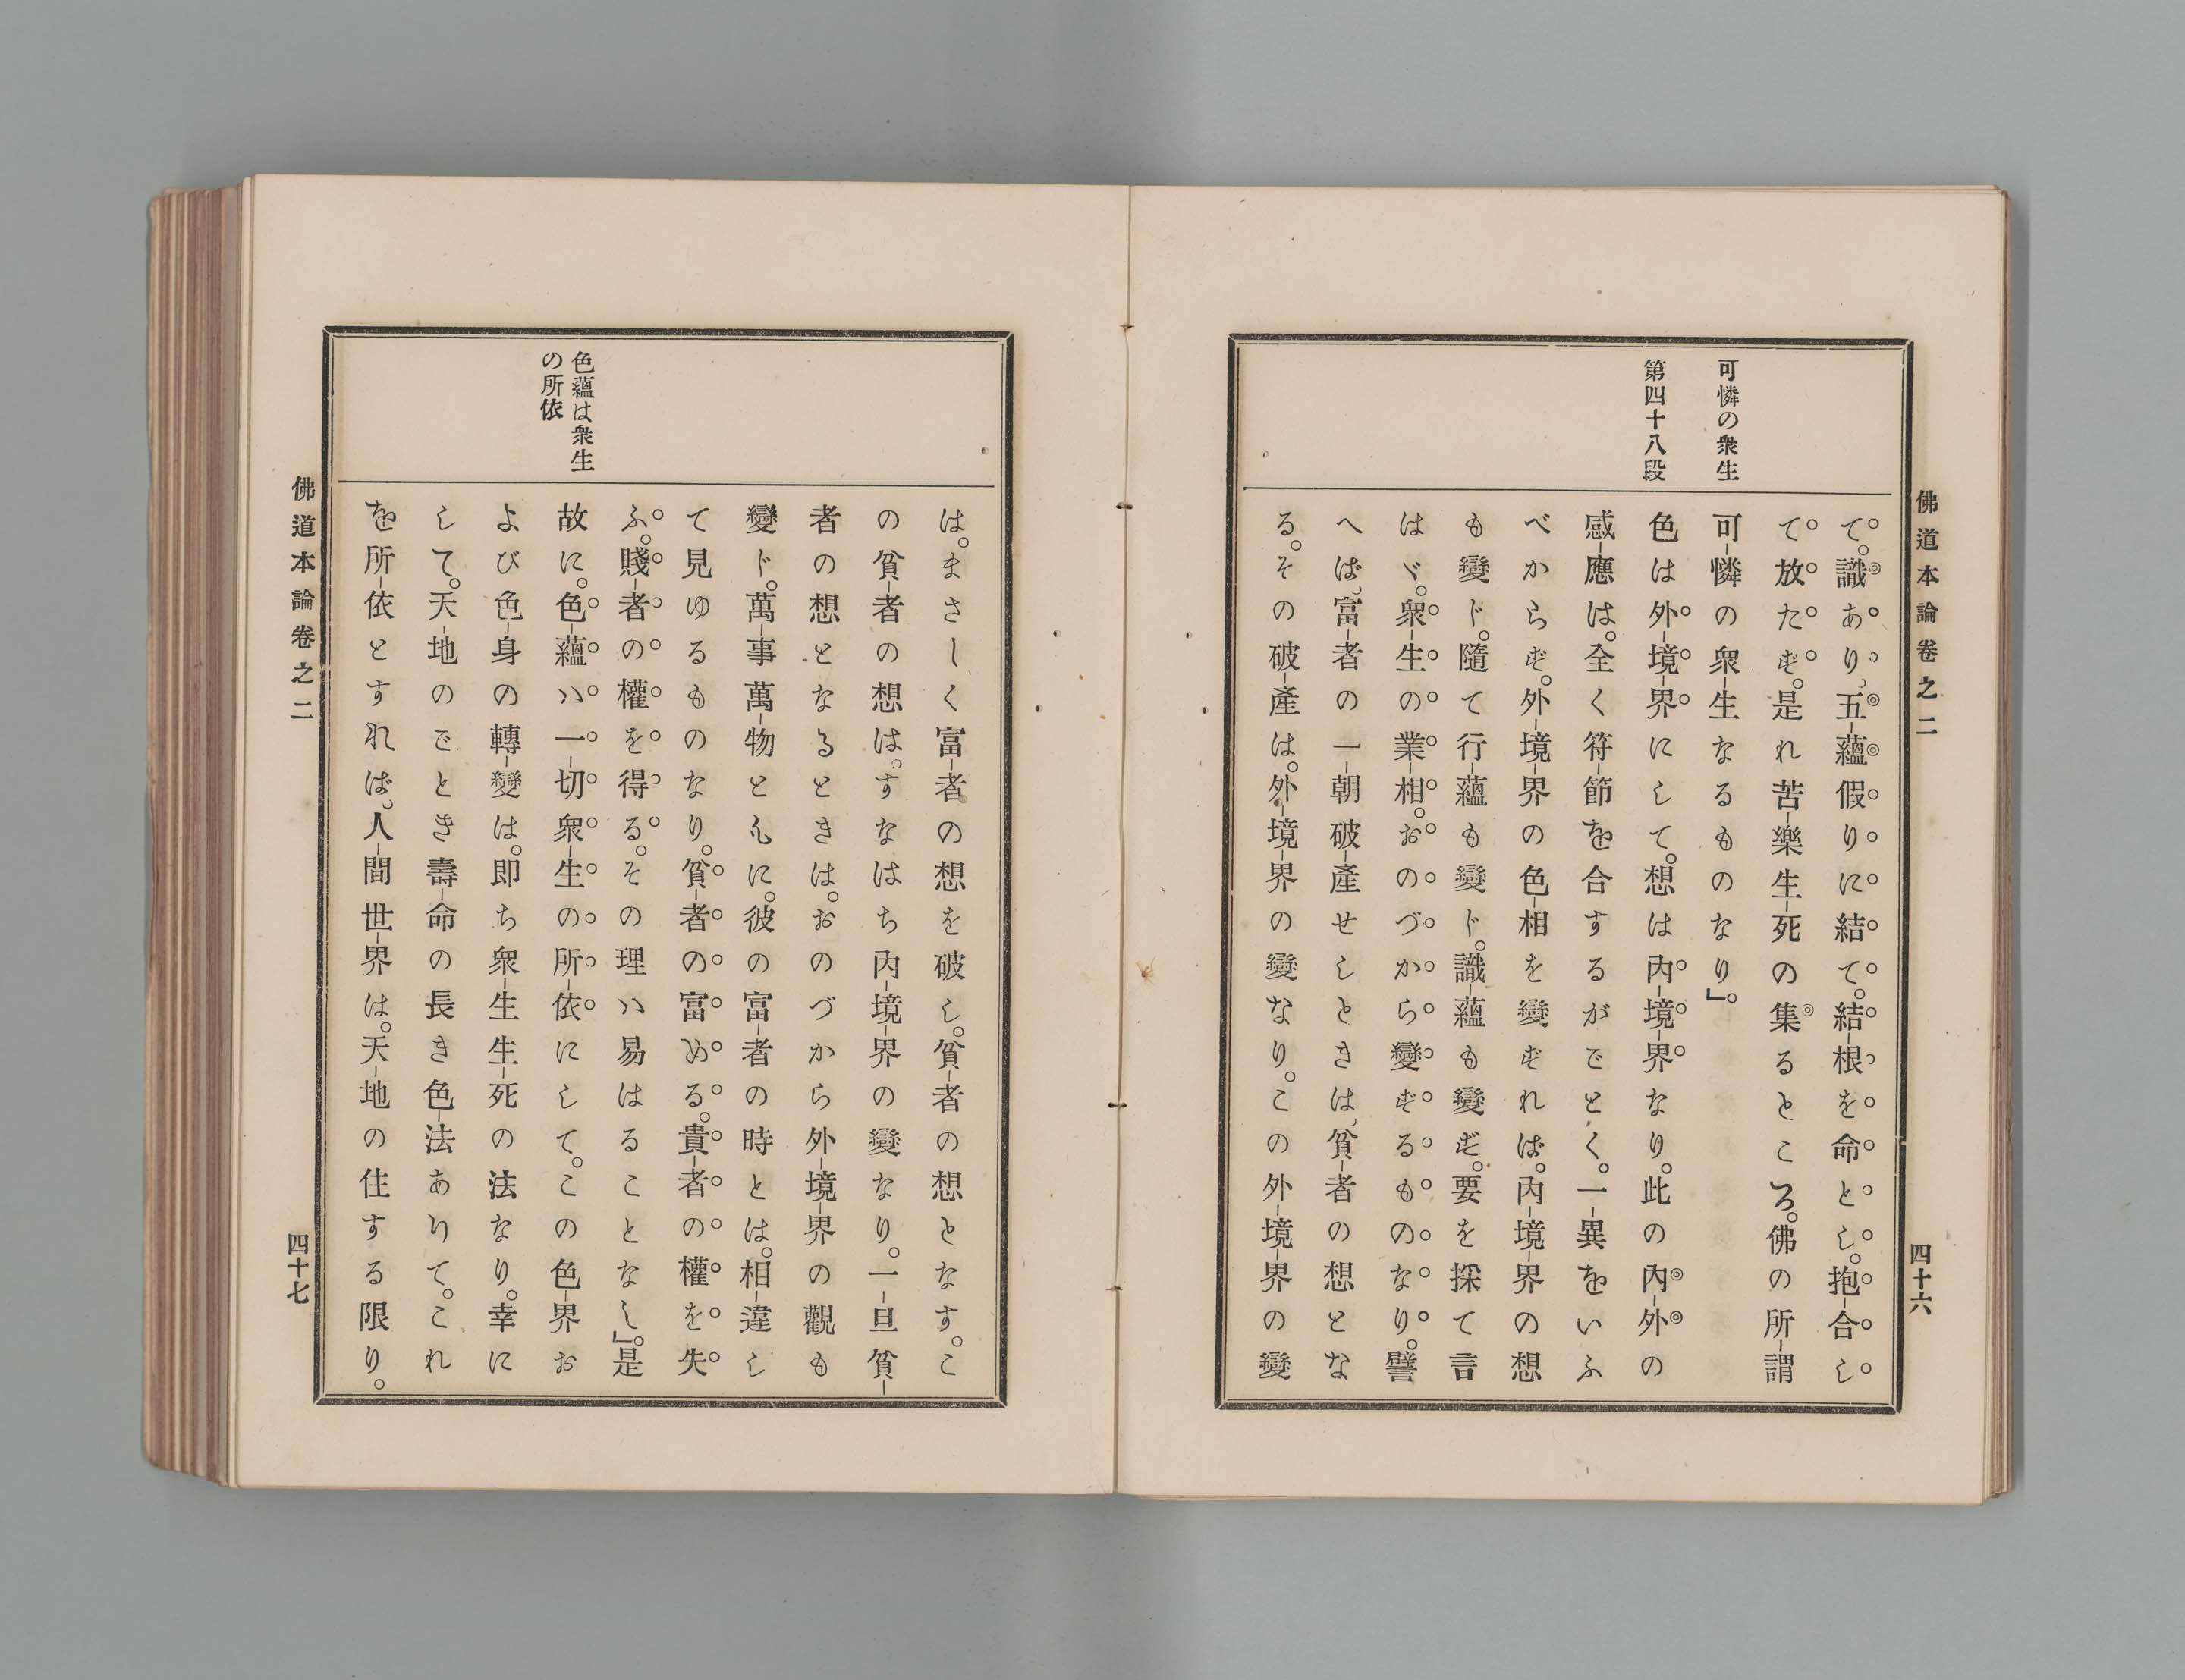 佛道本論卷之二
四十六
可憐の衆生
第四十八段
て。識あり、五蘊假りに結て。結根を命とし。抱合し
て放たず。是れ苦樂生死の集るところ。佛の所謂
可憐の衆生なるものなり』。
色は外境界にして。想は內境界なり。此の內外の
感應は。全く符節を合するがごとく。一異をいふ
べからず。外境界の色相を變ずれば。內境界の想
も變じ。隨て行蘊も變じ。識蘊も變ず。要を採て言
はゞ。衆生の業相。おのづから變ずるものなり。譬
へば。富者の一朝破產せしときは、貧者の想とな
る。その破產は。外境界の變なり。この外境界の變
は。まさしく富者の想を破し。貧者の想となす。こ
の貧者の想は。すなはち內境界の變なり。一旦貧
者の想となるときは。おのづから外境界の觀も
變じ。萬事萬物ともに。彼の富者の時とは。相違し
て見ゆるものなり。貧者の富める。貴者の權を失
ふ。賤者の權を得る。その理ハ易はることなし』。是
色蘊は衆生
の所依
故に。色蘊ハ一切衆生の所依にして。この色界お
よび色身の轉變は。即ち衆生生死の法なり。幸に
して。天地のごとき壽命の長き色法ありて。これ
を所依とすれば。人間世界は。天地の住する限り。
佛道本論卷之二
四十七